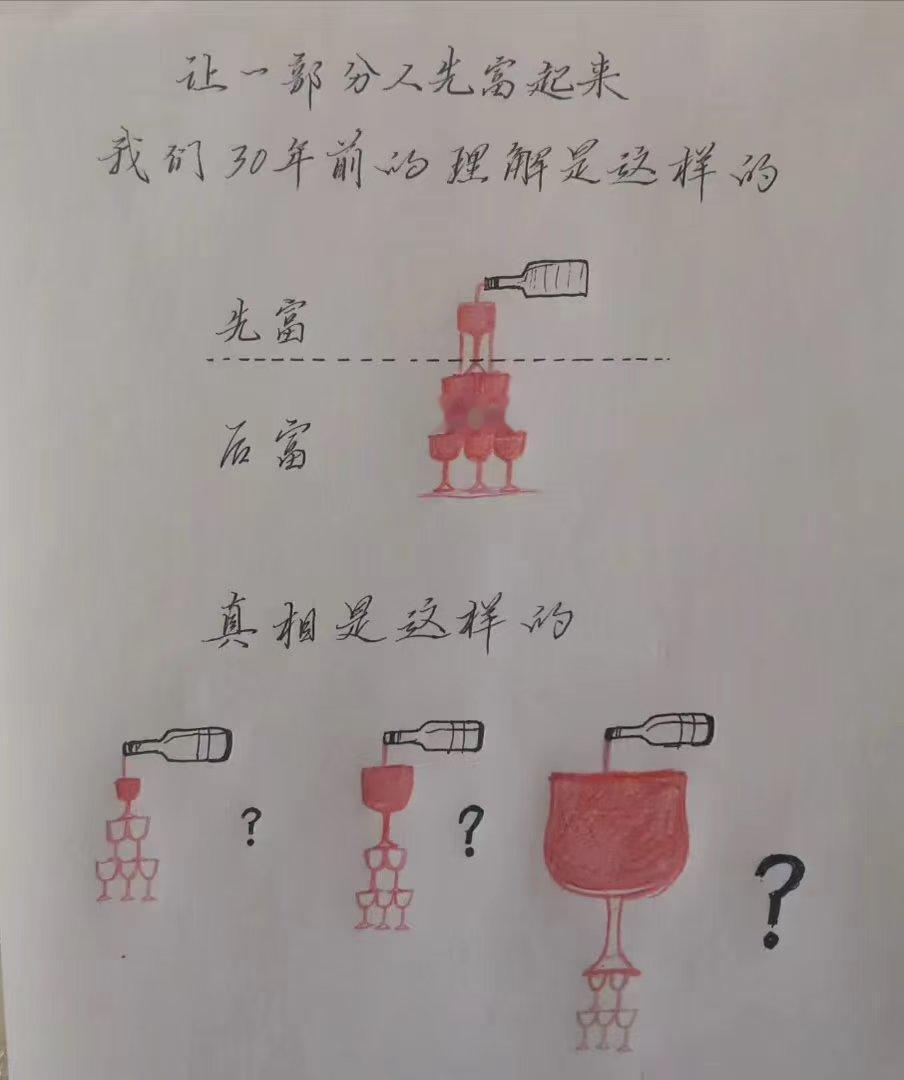 让一部分人先富起来
我们30年前的理解是这样的
先富
后富
真相是这样的
?
?
?